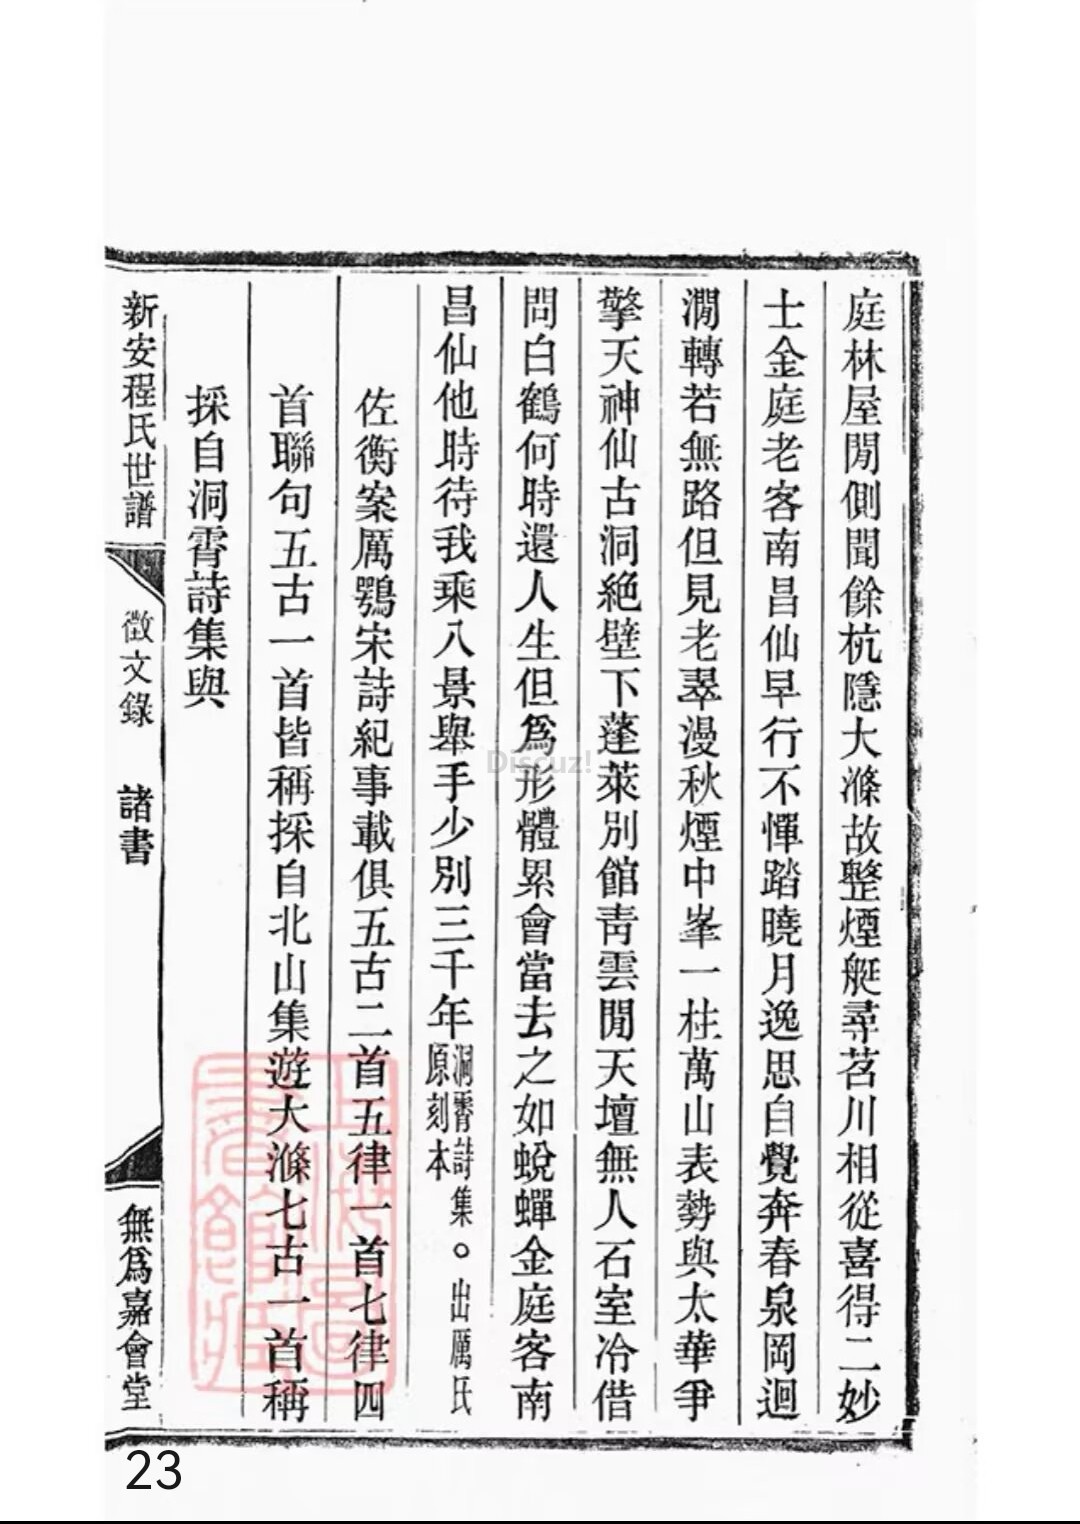 庭林屋閒側聞餘杭隱大滌故整煙艇尋苕川相從喜得二妙
士金庭老客南昌仙早行不憚踏曉月逸思自覺奔春泉岡迴
澗轉若無路但見老翠漫秋煙中峯一柱萬山表勢與太華爭
擎天神仙古洞絶壁下蓬萊別館青雲閒天壇無人石室冷借
問白鶴何時還人生但為形體累會當去之如蛻蟬金庭客南
昌仙他時待我乘八景舉手少別三千年洞霄詩集。出厲氏原刻本
佐衡案厲鶚宋詩紀事載俱五古二首五律一首七律四
首聯句五古一首皆稱採自北山集遊大滌七古一首稱
採自洞霄詩集與
新安程氏世譜 徵文錄 諸書 無為嘉會堂
Discuz!
23